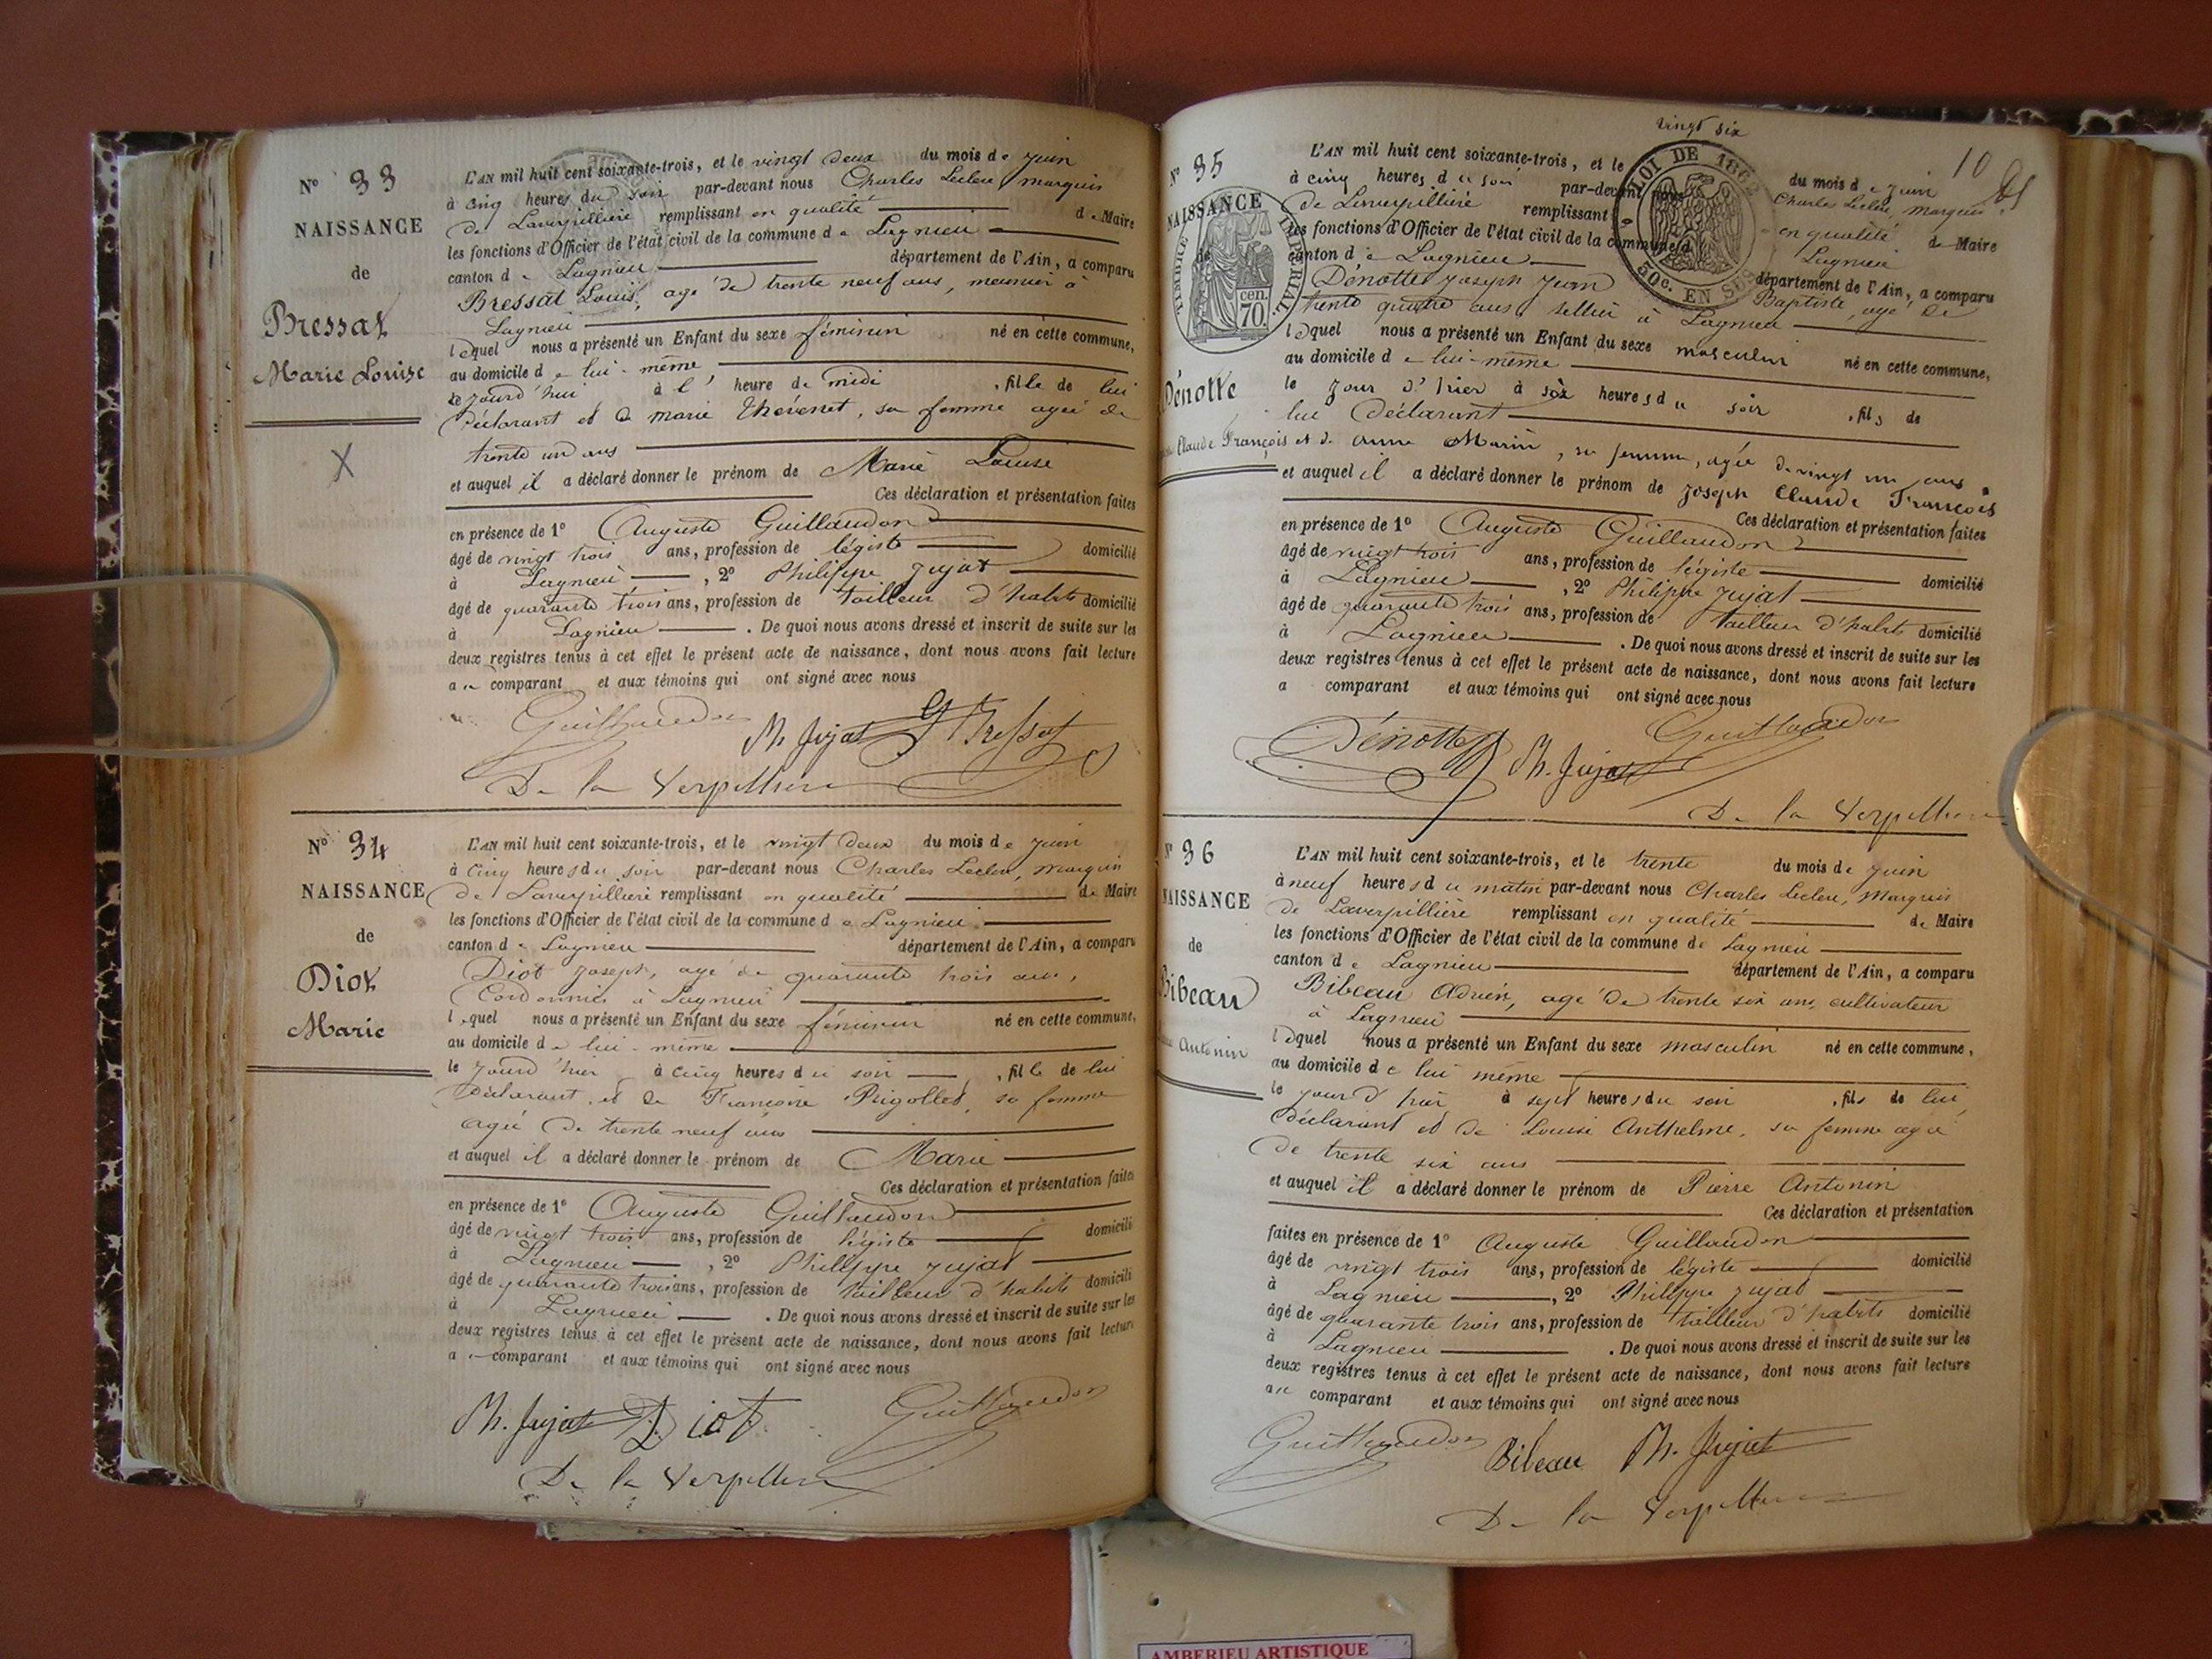 N° 33
NAISSANCE
de
Bressat
Marie Louise
X
L'AN mil huit cent soixante-trois, et le vingt deux du mois de Juin
à cinq heures du soir par-devant nous Charles Leclerc, marquis
de Laverpillière remplissant en qualité de Maire
les fonctions d'Officier de l'état civil de la commune de Lagnieu
canton de Lagnieu département de l'Ain, a comparu
Bressat Louis, agé de trente neuf ans, meunier à
Lagnieu
lequel nous a présenté un Enfant du sexe féminin né en cette commune,
au domicile de lui-même
ce jourd'hui à l'heure de midi, fille de lui
déclarant et de marie Thévenet, sa femme agée de
trente un ans
et auquel il a déclaré donner le prénom de Marie Louise
Ces déclaration et présentation faites
en présence de 1° Auguste Guillaudon
âgé de vingt trois ans, profession de légiste domicilié
à Lagnieu, 2° Philippe Jujat
âgé de quarante trois ans, profession de tailleur d'habits domicilié
à Lagnieu. De quoi nous avons dressé et inscrit de suite sur les
deux registres tenus à cet effet le présent acte de naissance, dont nous avons fait lecture
au comparant et aux témoins qui ont signé avec nous
Guillaudon Ph. Jujat Bressat
De la Verpillière
N° 34
NAISSANCE
de
Diot
Marie
L'AN mil huit cent soixante-trois, et le vingt deux du mois de Juin
à cinq heures du soir par-devant nous Charles Leclerc, marquis
de Laverpillière remplissant en qualité de Maire
les fonctions d'Officier de l'état civil de la commune de Lagnieu
canton de Lagnieu département de l'Ain, a comparu
Diot Joseph, agé de quarante trois ans,
Cordonnier à Lagnieu
lequel nous a présenté un Enfant du sexe féminin né en cette commune,
au domicile de lui-même
le jourd'hier à cinq heures du soir, fille de lui
déclarant et de Françoise Rigollet, sa femme
agée de trente neuf ans
et auquel il a déclaré donner le prénom de Marie
Ces déclaration et présentation faites
en présence de 1° Auguste Guillaudon
âgé de vingt trois ans, profession de légiste domicili
à Lagnieu, 2° Philippe Jujat
âgé de quarante trois ans, profession de tailleur d'habits domicili
à Lagnieu. De quoi nous avons dressé et inscrit de suite sur les
deux registres tenus à cet effet le présent acte de naissance, dont nous avons fait lectur
au comparant et aux témoins qui ont signé avec nous
Ph. Jujat Diot Guillaudon
De la Verpillière
10
N° 35
NAISSANCE
de
Dénotte
Claude François
TIMBRE IMPERIAL
cen. 70.
LOI DE 1862
50c. EN SUS
vingt six
L'AN mil huit cent soixante-trois, et le du mois de Juin
à cinq heures du soir par-devant nous Charles Leclerc, marquis
de Laverpillière remplissant en qualité de Maire
les fonctions d'Officier de l'état civil de la commune d Lagnieu
canton de Lagnieu département de l'Ain, a comparu
Dénotte Joseph Jean Baptiste, agé de
trente quatre ans, sellier à Lagnieu
lequel nous a présenté un Enfant du sexe masculin né en cette commune,
au domicile de lui-même
le jour d'hier à six heures du soir, fils de
lui déclarant
et de anne Marin, sa femme, agée de vingt un ans
et auquel il a déclaré donner le prénom de Joseph Claude François
Ces déclaration et présentation faites
en présence de 1° Auguste Guillaudon
âgé de vingt trois ans, profession de légiste domicilié
à Lagnieu, 2° Philippe Jujat
âgé de quarante trois ans, profession de tailleur d'habits domicilié
à Lagnieu. De quoi nous avons dressé et inscrit de suite sur les
deux registres tenus à cet effet le présent acte de naissance, dont nous avons fait lecture
a comparant et aux témoins qui ont signé avec nous
Dénotte Ph. Jujat Guillaudon
De la Verpillière
N° 36
NAISSANCE
de
Bibeau
Antonin
L'AN mil huit cent soixante-trois, et le trente du mois de Juin
à neuf heures du matin par-devant nous Charles Leclerc, Marquis
de Laverpillière remplissant en qualité de Maire
les fonctions d'Officier de l'état civil de la commune de Lagnieu
canton de Lagnieu département de l'Ain, a comparu
Bibeau Adrien, agé de trente six ans, cultivateur
à Lagnieu
lequel nous a présenté un Enfant du sexe masculin né en cette commune,
au domicile de lui même
le jour d'hier à sept heures du soir, fils de lui
déclarant et de Louise Anthelme, sa femme agée
de trente six ans
et auquel il a déclaré donner le prénom de Pierre Antonin
Ces déclaration et présentation
faites en présence de 1° Auguste Guillaudon
âgé de vingt trois ans, profession de légiste domicilié
à Lagnieu, 2° Philippe Jujat
âgé de quarante trois ans, profession de tailleur d'habits domicilié
à Lagnieu. De quoi nous avons dressé et inscrit de suite sur les
deux registres tenus à cet effet le présent acte de naissance, dont nous avons fait lecture
au comparant et aux témoins qui ont signé avec nous
Guillaudon Bibeau Ph. Jujat
De la Verpillière
AMBERIEU ARTISTIQUE